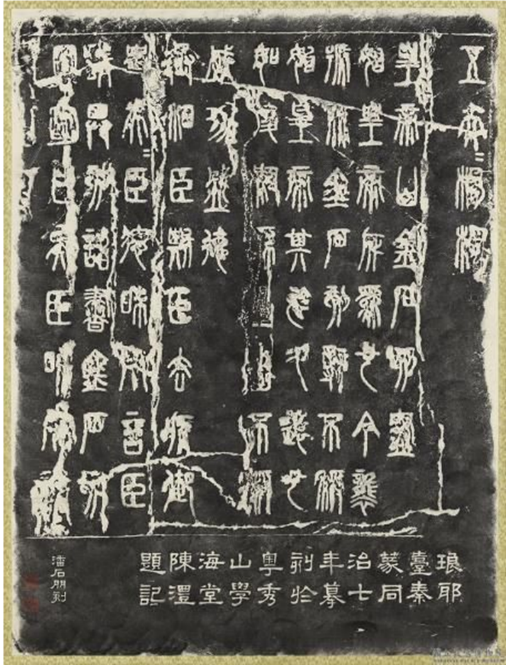 五夫=楊樛
皇帝曰金石刻盡
始皇帝所為也今襲
號而金石刻辭不稱
始皇帝其於久遠也
如後嗣為之者不稱
成功盛德
丞相臣斯臣去疾御
史夫=臣德昧死言臣
請具刻詔書金石刻
因明白矣臣昧死請
琅邪
臺秦
篆同
治七
年摹
刻於
粵秀
山學
海堂
陳澧
題記
潘石朋刻